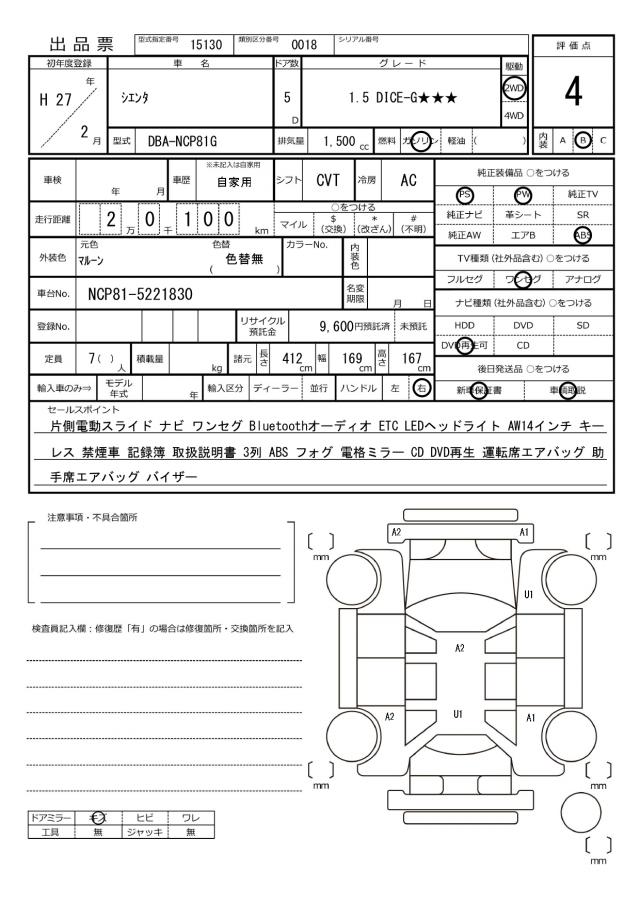 出品票 型式指定番号 15130 類別区分番号 0018 シリアル番号
評価点
初年度登録 車名 ドア数 グレード 駆動
H 27 年 2 月 シエンタ 5 D 1.5 DICE-G★★★ 2WD 4WD 4
型式 DBA-NCP81G 排気量 1,500 cc 燃料 ガソリン 軽油 ( ) 内装 A B C
車検 年 月 車歴 ※未記入は自家用 自家用 シフト CVT 冷房 AC
純正装備品 ○をつける
PS PW 純正TV
純正ナビ 革シート SR
純正AW エアB ABS
走行距離 2 万 0 千 1 0 0 km ○をつける マイル $(交換) *(改ざん) #(不明)
TV種類(社外品含む)○をつける
フルセグ ワンセグ アナログ
外装色 元色 マルーン 色替 ( 色替無 ) カラーNo. 内装色
車台No. NCP81-5221830 名変期限 月 日
ナビ種類(社外品含む)○をつける
HDD DVD SD
DVD再生可 CD
登録No. リサイクル預託金 9,600円預託済 未預託
定員 7( )人 積載量 kg 諸元 長さ 412 cm 幅 169 cm 高さ 167 cm
後日発送品 ○をつける
新車保証書 車輌取説
輸入車のみ⇒ モデル年式 年 輸入区分 ディーラー 並行 ハンドル 左 右
セールスポイント
片側電動スライド ナビ ワンセグ Bluetoothオーディオ ETC LEDヘッドライト AW14インチ キー
レス 禁煙車 記録簿 取扱説明書 3列 ABS フォグ 電格ミラー CD DVD再生 運転席エアバッグ 助
手席エアバッグ バイザー
注意事項・不具合箇所
検査員記入欄：修復歴「有」の場合は修復箇所・交換箇所を記入
A2 A1
mm mm
U1
A2
A2 U1 A1
mm mm
mm
ドアミラー キズ ヒビ ワレ
工具 無 ジャッキ 無